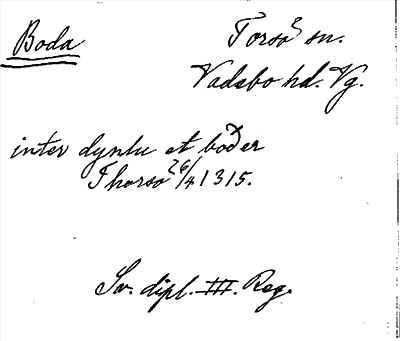 Boda
Torsö sn.
Vadsbo hd. Vg.
inter dynlu et boðer
Thorso 26/4 1315.
Sv. dipl. III. Reg.